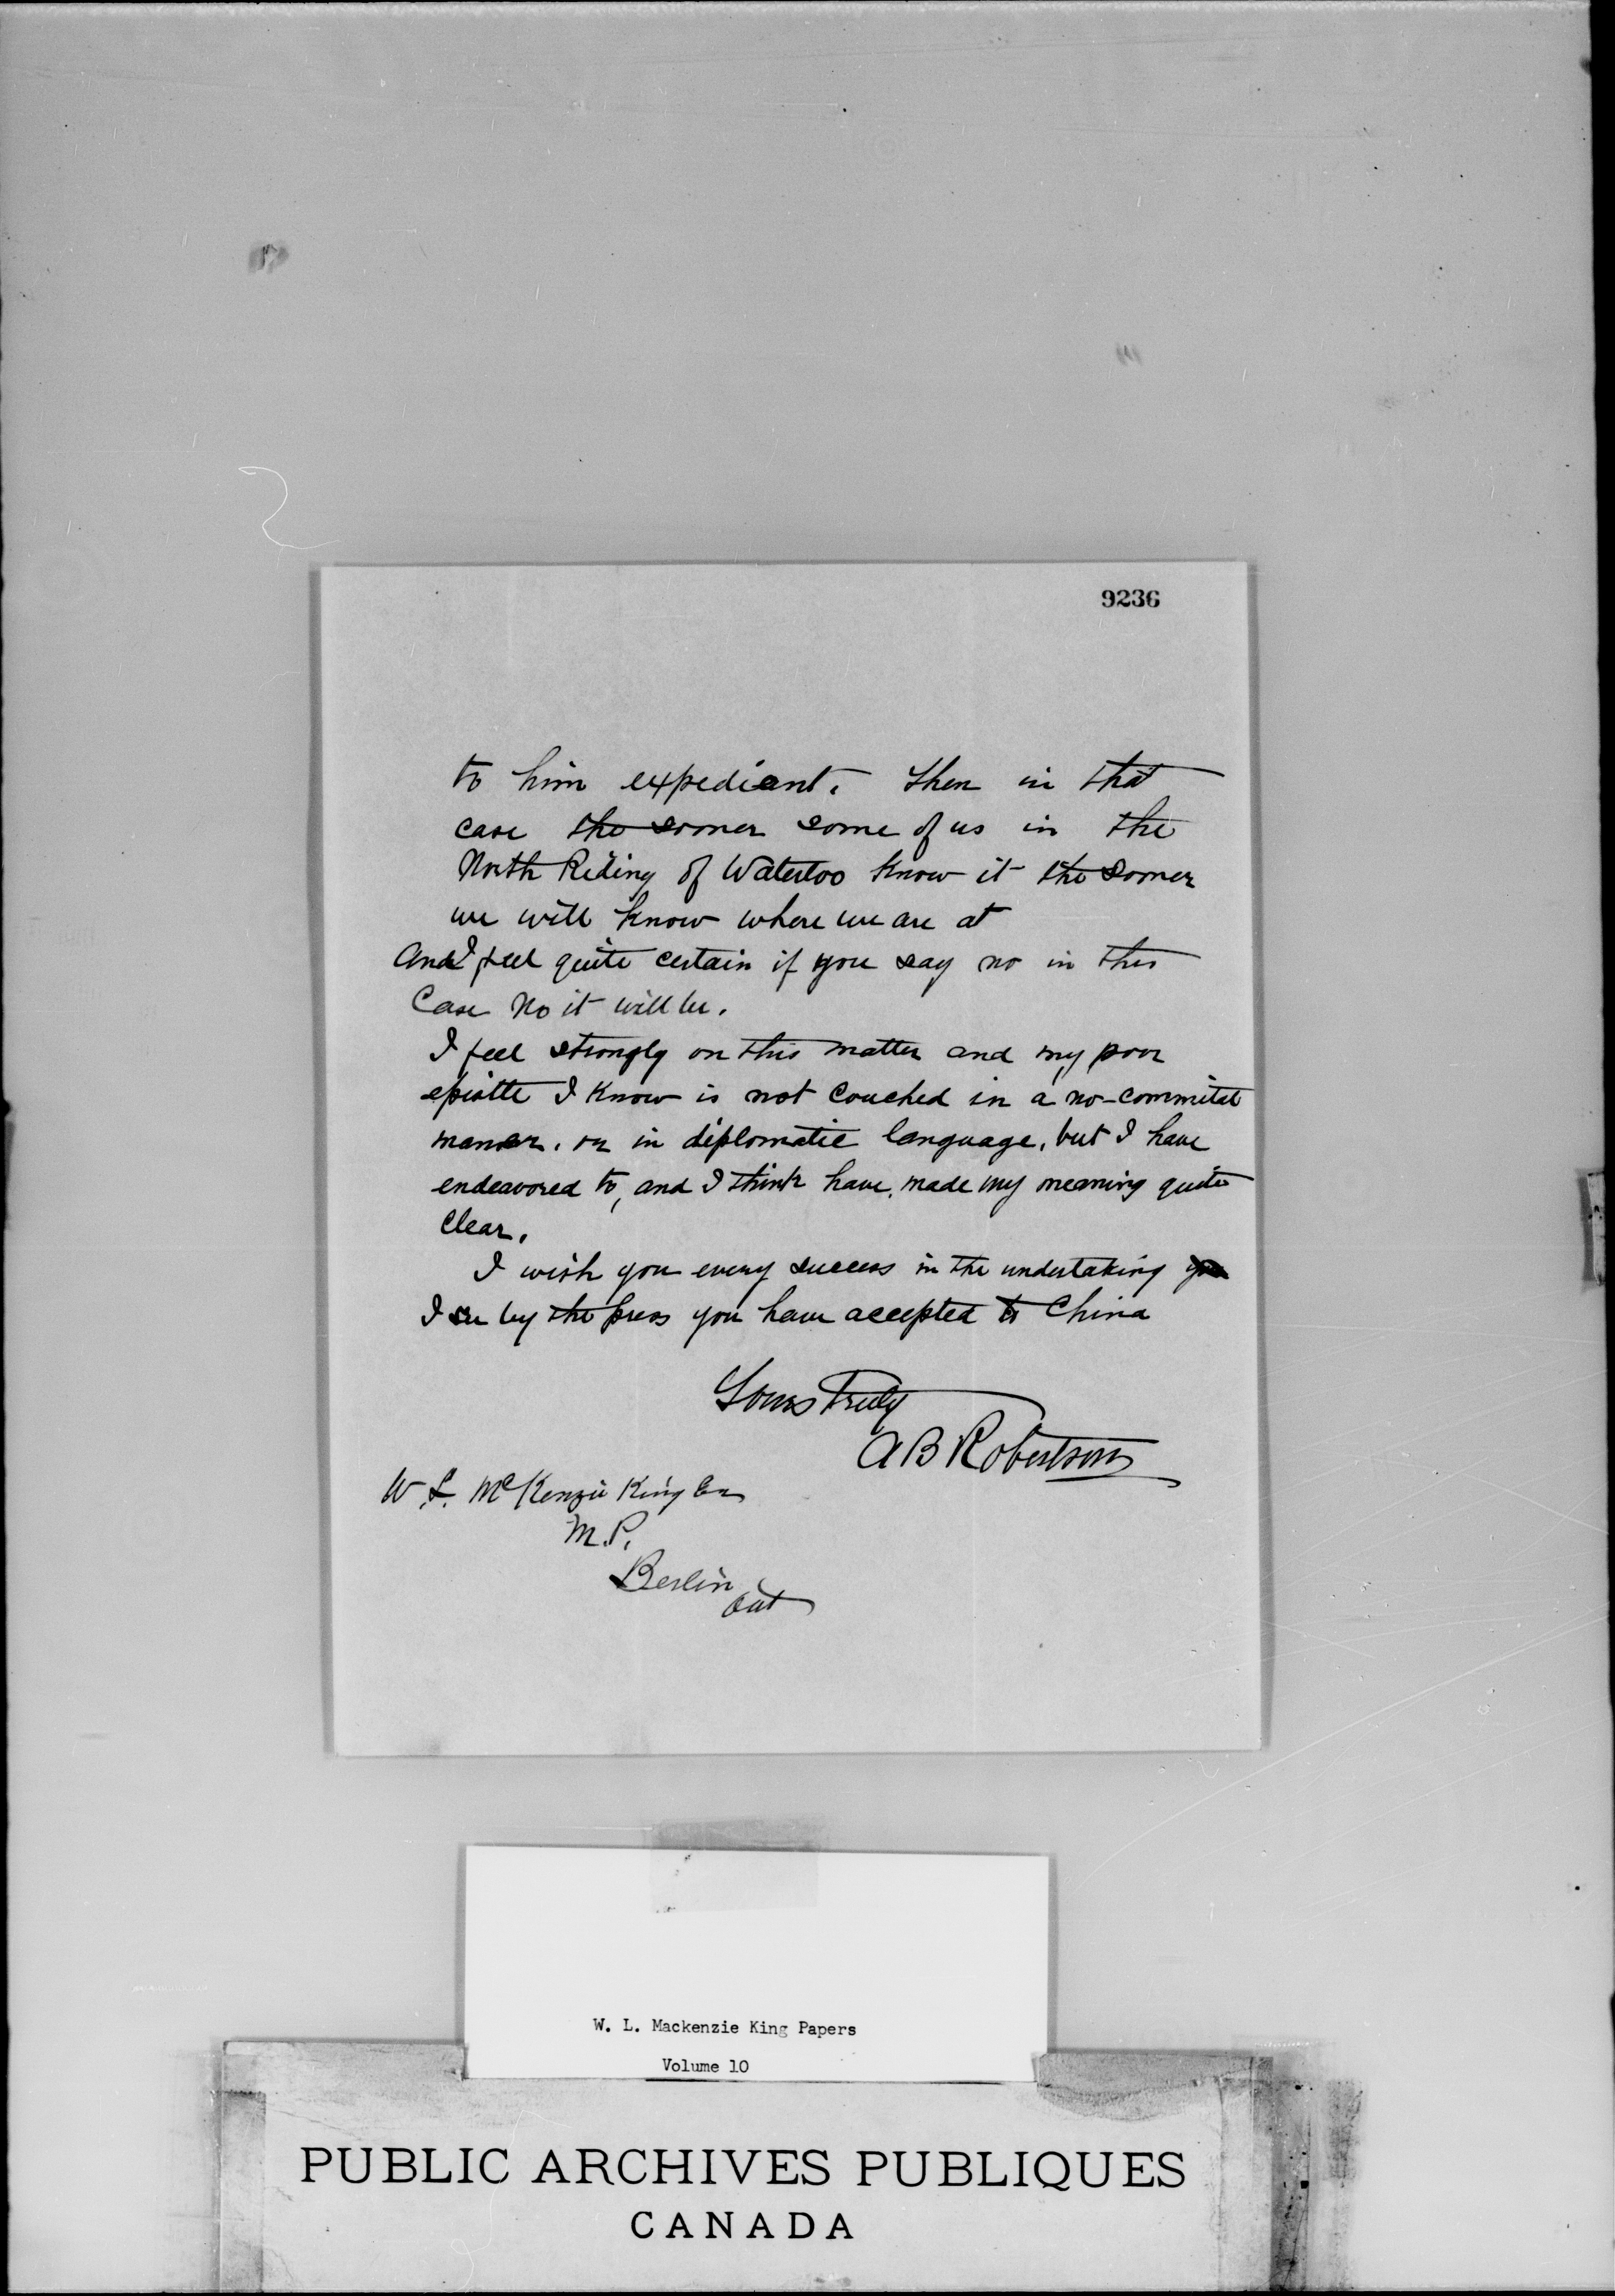 9236
to him expediant. Then in that
case the sooner some of us in the
North Riding of Waterloo know it the sooner
we will know where we are at
And I feel quite certain if you say no in this
Case No it will be.
I feel strongly on this matter and my poor
epistle I know is not couched in a no-commital
manner. or in diplomatic language, but I have
endeavored to, and I think have, made my meaning quite
clear.
I wish you every success in the undertaking
I see by the press you have accepted to China
Yours Truly
A B Robertson
W. L. McKenzie King
M.P.
Berlin
Ont
W. L. Mackenzie King Papers
Volume 10
PUBLIC ARCHIVES PUBLIQUES
CANADA